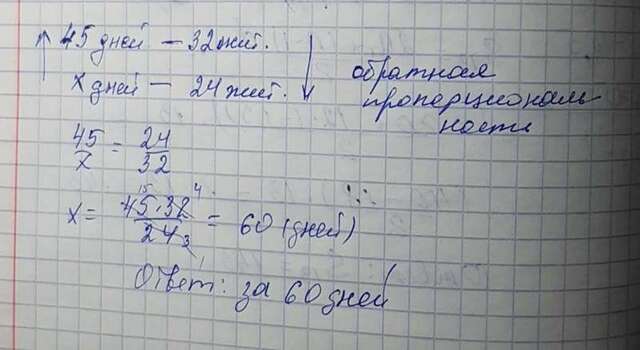 ↑ 45 дней — 32 жит. ↓
x дней — 24 жит.
обратная
пропорциональ
ность
45/x = 24/32
x = 45·32/24 = 60 (дней)
Ответ: за 60 дней